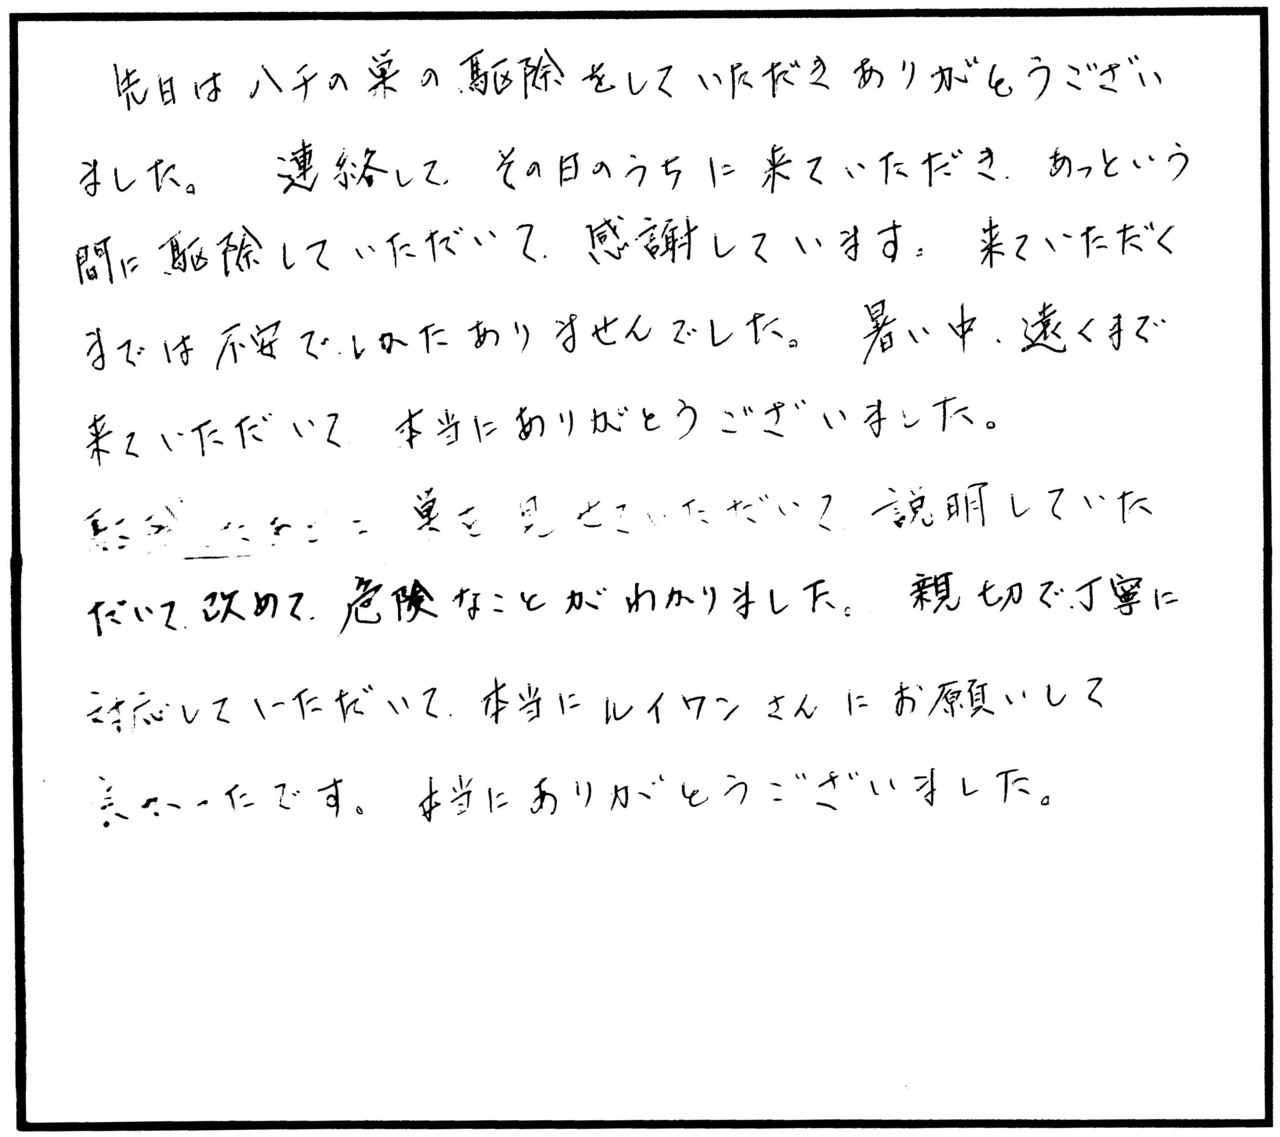 先日はハチの巣の駆除をしていただきありがとうござい
ました。 連絡して、その日のうちに来ていただき、あっという
間に駆除していただいて、感謝しています。 来ていただく
までは不安で、しかたありませんでした。 暑い中、遠くまで
来ていただいて 本当にありがとうございました。
巣を見せていただいて、説明していた
だいて、改めて、危険なことがわかりました。 親切で、丁寧に
対応していただいて、本当にルイワンさんにお願いして
良かったです。 本当にありがとうございました。